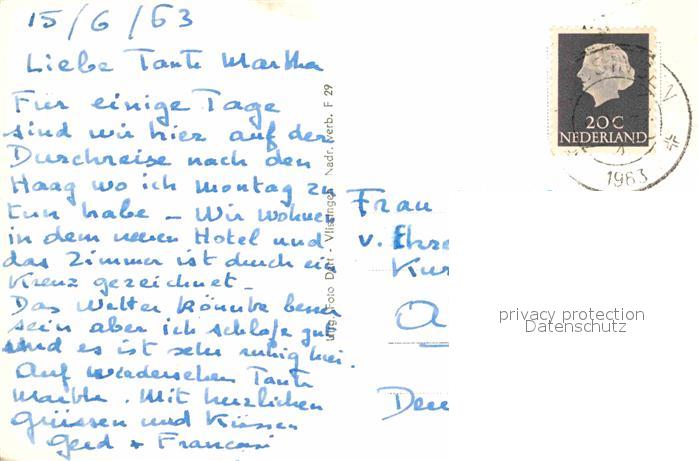 15/6/63
Liebe Tante Martha
Für einige Tage
sind wir hier auf der
Durchreise nach den
Haag wo ich Montag zu
tun habe – Wir wohnen
in dem neuen Hotel und
das Zimmer ist durch ein
Kreuz gezeichnet –
Das Wetter könnte besser
sein aber ich schlafe gut
und es ist sehr ruhig hier.
Auf Wiedersehen Tante
Martha. Mit herzlichen
Grüssen und Küssen
Gerd +
Uitg. Foto Dert - Vlissingen Nadr. verb. F 29
20 C
NEDERLAND
1963
Frau
v.
Kur
privacy protection
Datenschutz